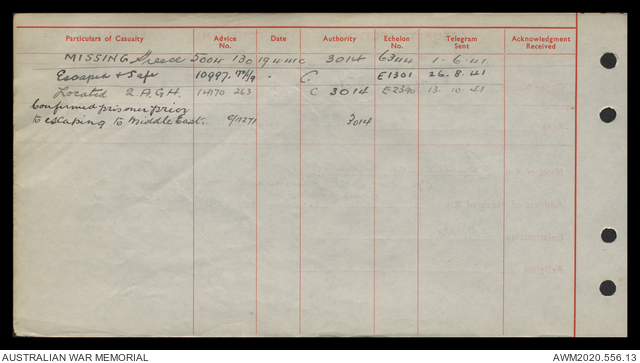 Particulars of Casualty Advice No. Date Authority Echelon No. Telegram Sent Acknowledgment Received
MISSING Greece 5004 130 19 4 41 C 3014 6344 1.6.41
Escaped & Safe 10997. C. E1301 26.8.41
Located 2. A.G.H. 14170 263 C 3014 E2390 13.10.41
Confirmed prisoner prior
to escaping to Middle East. 3014
AUSTRALIAN WAR MEMORIAL AWM2020.556.13